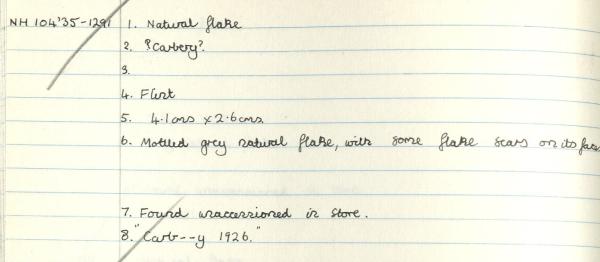 NH 104'35-1291 1. Natural flake
2. ?Carbery?
3.
4. Flint
5. 4.1cms x 2.6cms.
6. Mottled grey natural flake, with some flake scars on its face
7. Found unaccessioned in store.
8. "Carb--y 1926."